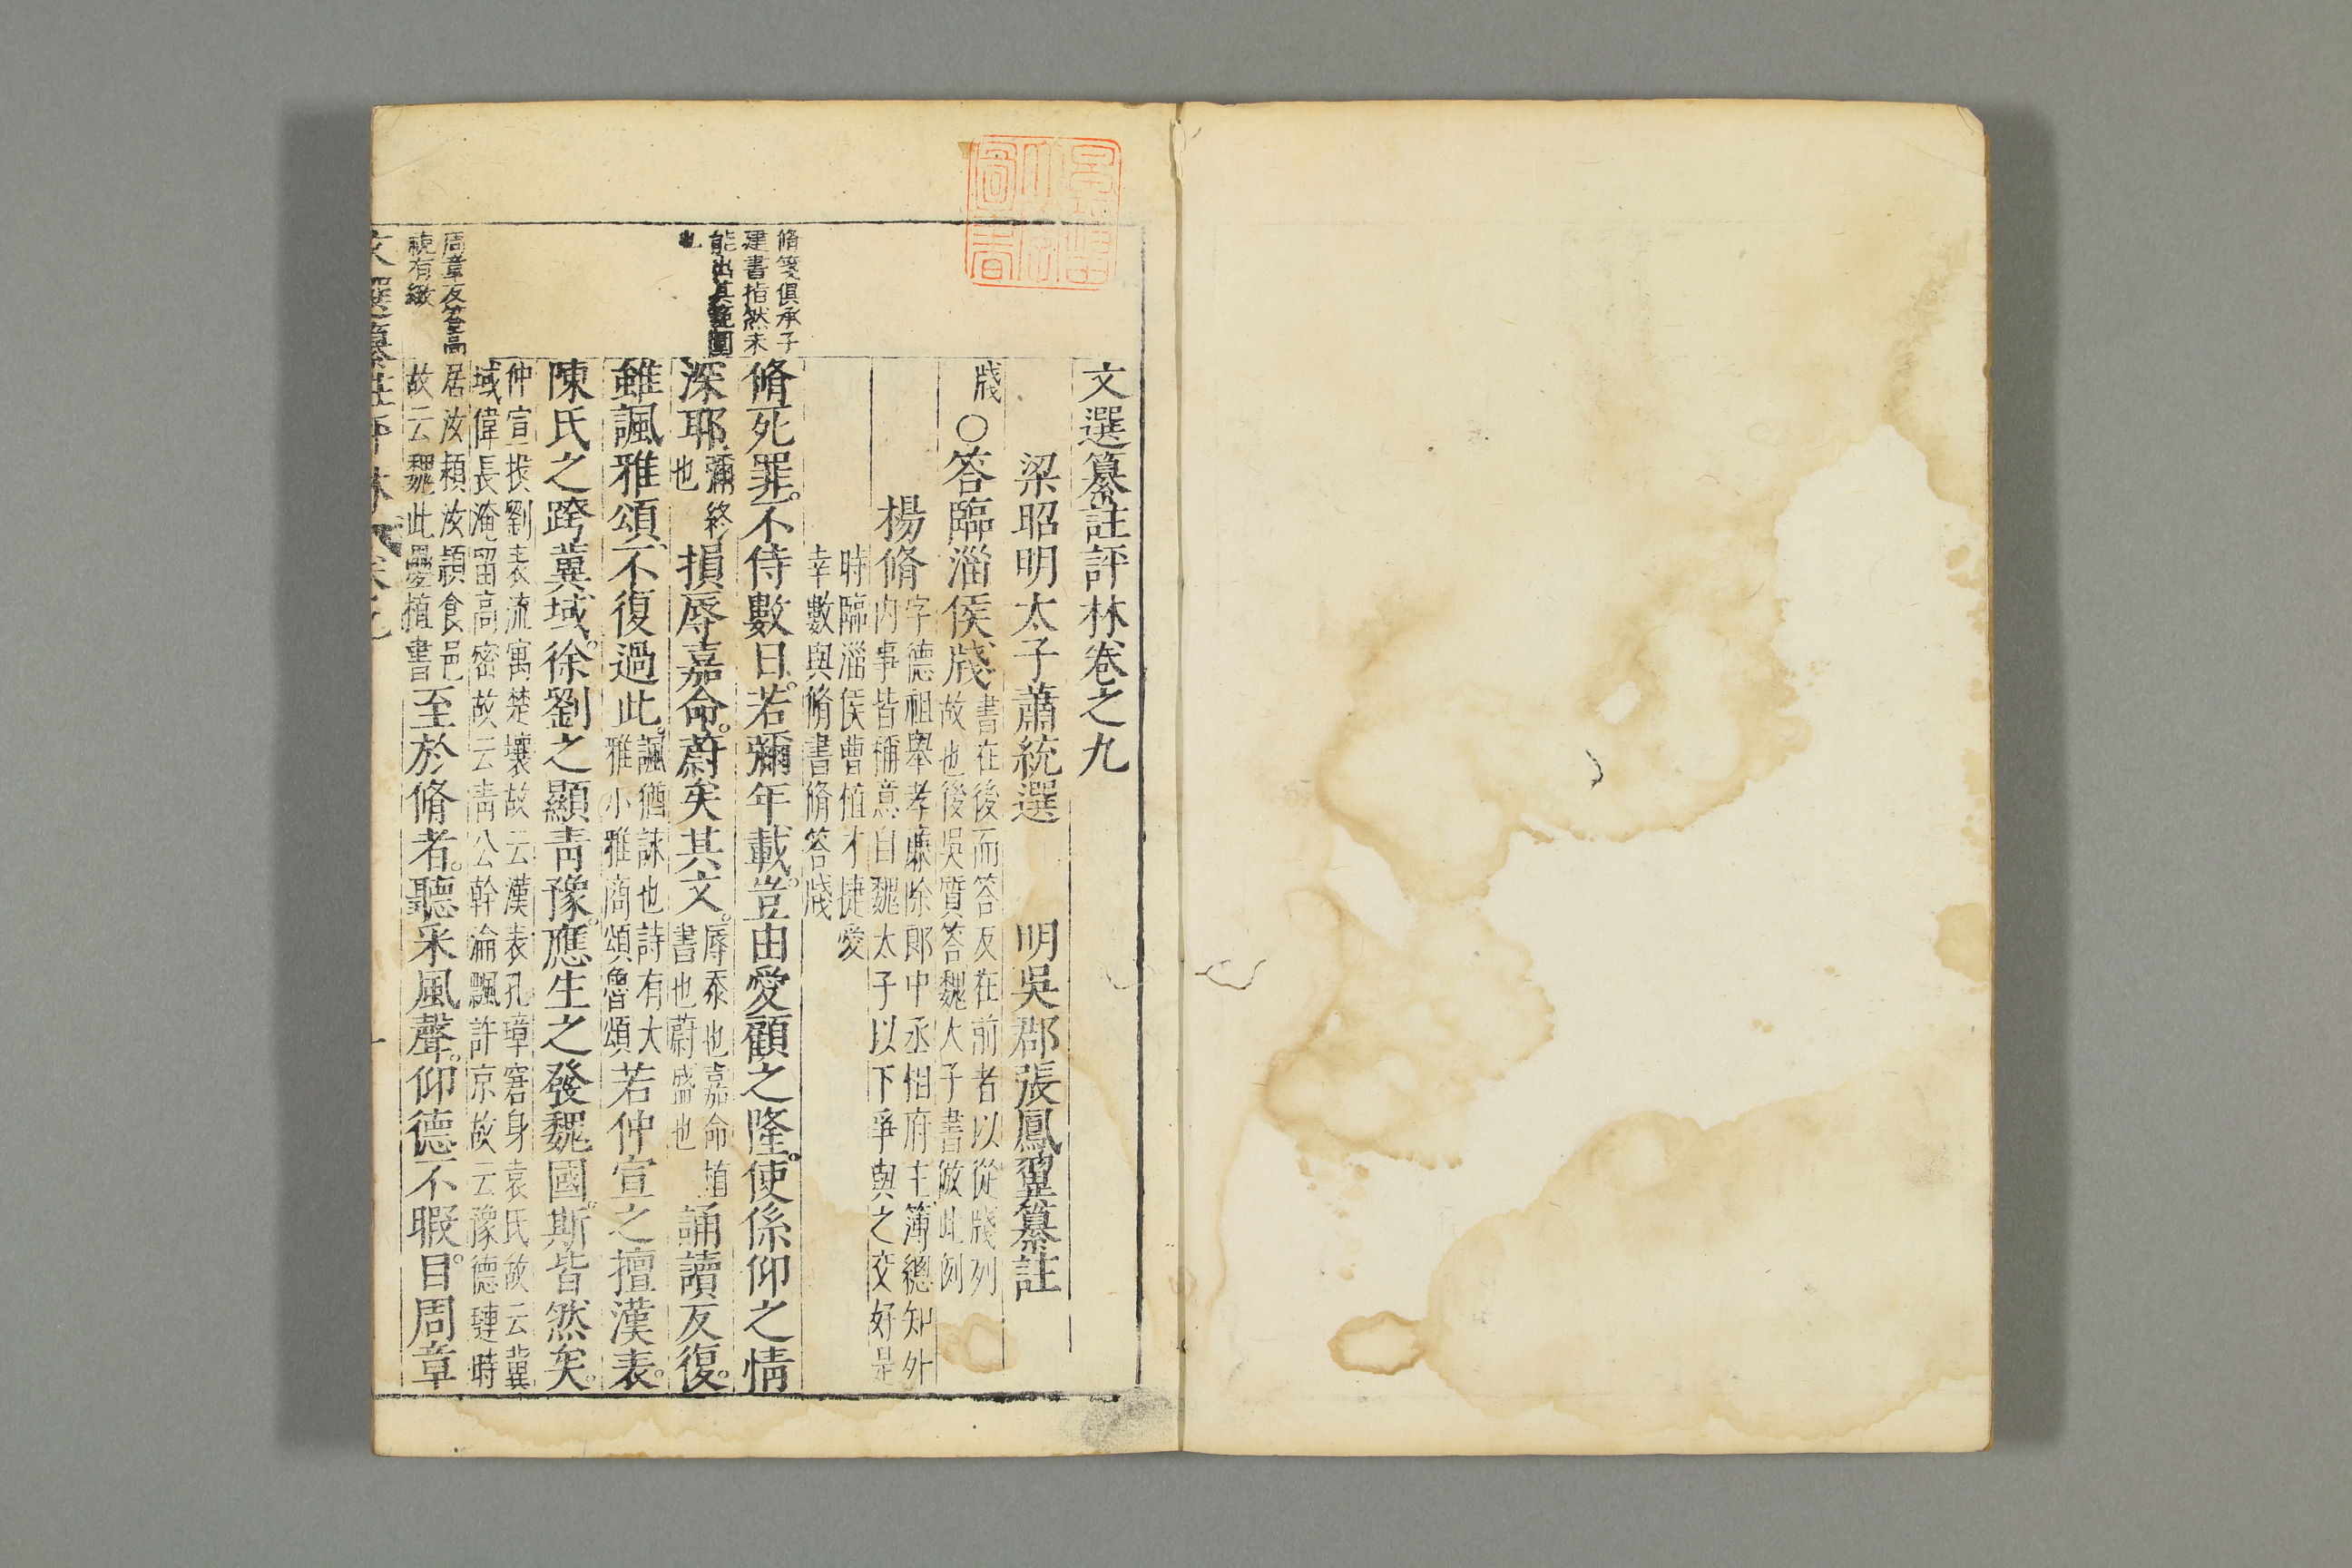 文選纂註評林卷之九
梁昭明太子蕭統選　明吳郡張鳳翼纂註
牋
○答臨淄侯牋
書在後而答反在前者以從牋列
故也後吳質答魏太子書倣此例
楊脩
字德祖舉孝廉除郎中丞相府主簿總知外
內事皆稱意自魏太子以下爭與之交好是
時臨淄侯曹植才捷愛
幸數與脩書脩答牋
脩死罪不侍數日若彌年載豈由愛顧之隆使係仰之情
深耶
彌終
也
損辱嘉命蔚矣其文
辱忝也嘉命植
書也蔚盛也
誦讀反復
雖諷雅頌不復過此
諷猶誦也詩有大
雅小雅商頌魯頌
若仲宣之擅漢表
陳氏之跨冀域徐劉之顯青豫應生之發魏國斯皆然矣
仲宣投劉表流寓楚壤故云漢表孔璋窘身袁氏故云冀
域偉長淹留高密故云青公幹淪飄許京故云豫德璉時
居汝潁汝潁食邑
故云魏此疊植書
至於脩者聽采風聲仰德不暇目周章
脩箋俱承子
建書指然未
能出其範圍
也
周章反答高
視有致
文選纂註評林
卷九
一